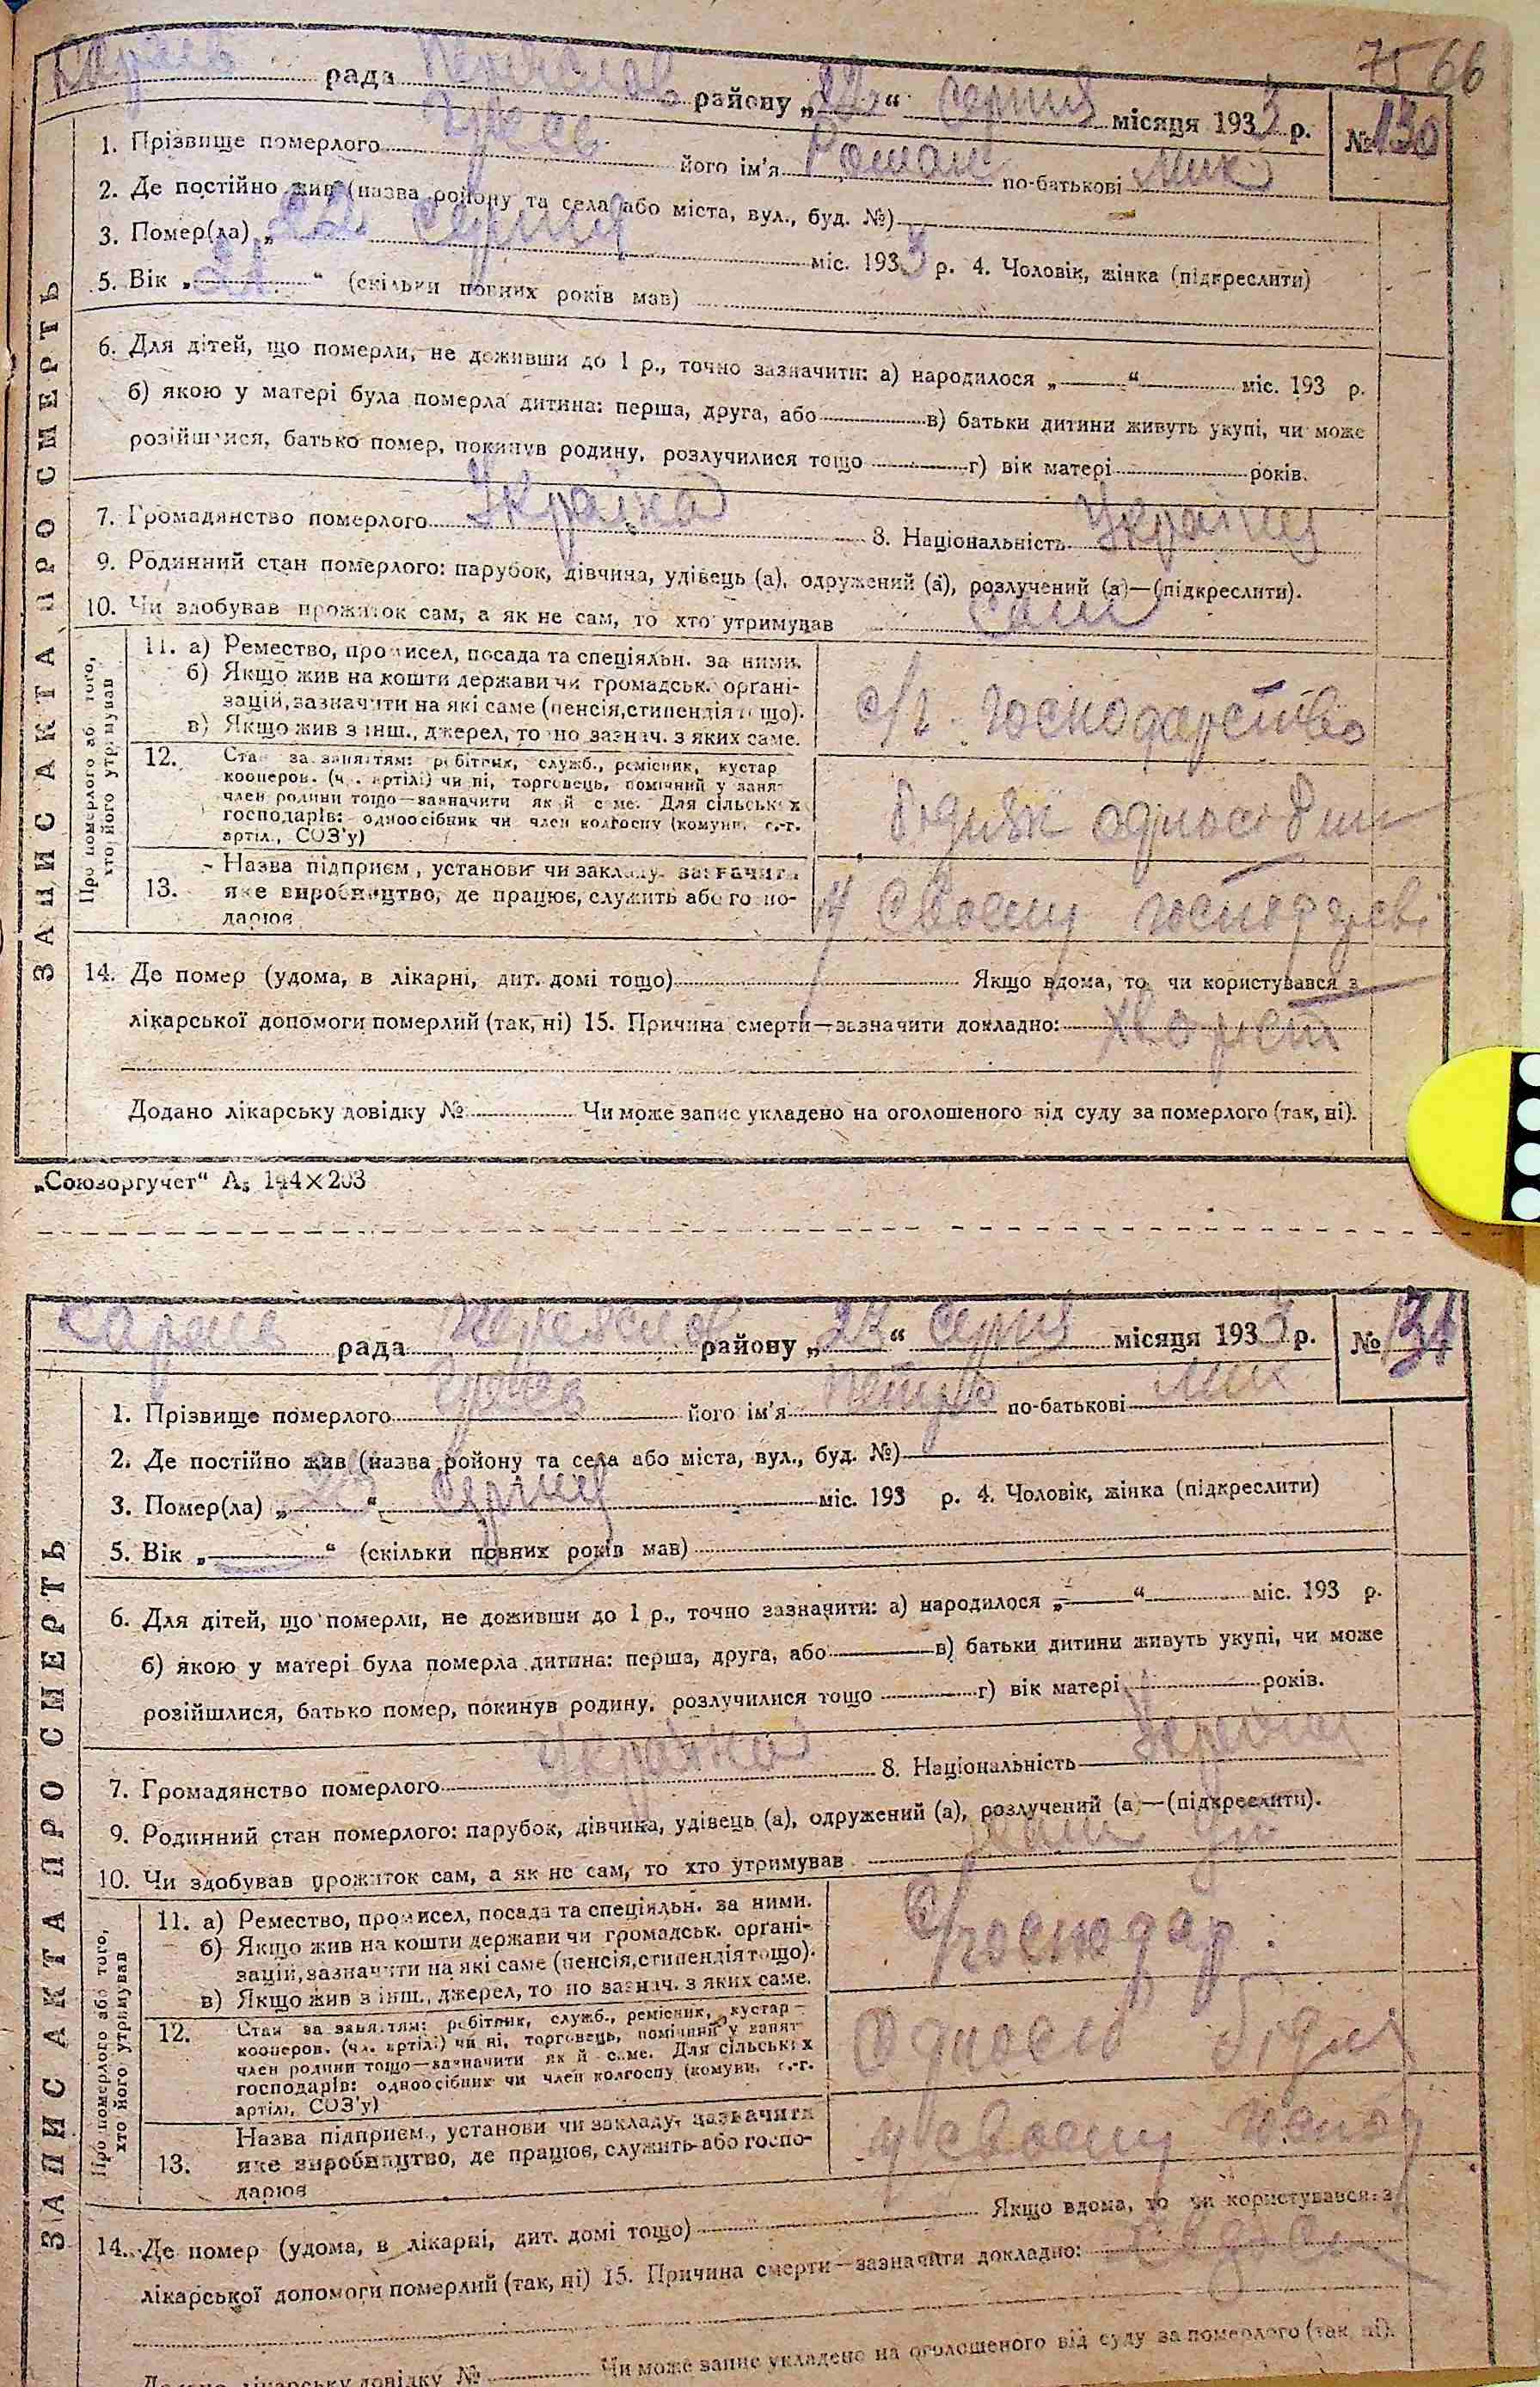 75 66
рада Переяслав району „22“ серпня місяця 1933 р. № 130
1. Прізвище померлого його ім'я Роман по-батькові Мик
2. Де постійно жив (назва ройону та села або міста, вул., буд. №)
3. Помер(ла) „22 серпня міс. 1933 р. 4. Чоловік, жінка (підкреслити)
5. Вік „21“ (скільки повних років мав)
6. Для дітей, що померли, не доживши до 1 р., точно зазначити: а) народилося „ “ міс. 193 р.
б) якою у матері була померла дитина: перша, друга, або в) батьки дитини живуть укупі, чи може
розійшлися, батько помер, покинув родину, розлучилися тощо г) вік матері років.
7. Громадянство померлого Україна 8. Національність Українец
9. Родинний стан померлого: парубок, дівчина, удівець (а), одружений (а), розлучений (а)—(підкреслити).
10. Чи здобував прожиток сам, а як не сам, то хто утримував сам
ЗАПИС АКТА ПРО СМЕРТЬ
Про померлого або того, хто його утримував
11. а) Ремество, промисел, посада та спеціяльн. за ними.
б) Якщо жив на кошти держави чи громадськ. органі-
зацій, зазначити на які саме (пенсія, стипендія тощо).
в) Якщо жив з інш., джерел, точно зазнач. з яких саме.
с/г. господарство
12. Стан за заняттям: робітник, служб., ремісник, кустар
кооперов. (чл. артілі) чи ні, торговець, помічний у занят
член родини тощо—зазначити який саме. Для сільських
господарів: одноосібник чи член колгоспу (комуни, с.-г.
артіл., СОЗ'у)
бідняк
13. Назва підприєм., установи чи закладу, зазначити
яке виробництво, де працює, служить або госпо-
дарює
у своему
14. Де помер (удома, в лікарні, дит. домі тощо) Якщо вдома, то чи користувався з
лікарської допомоги померлий (так, ні) 15. Причина смерти—зазначити докладно:
Додано лікарську довідку № Чи може запис укладено на оголошеного від суду за померлого (так, ні).
„Союзоргучет“ А5 144×203
рада Переяслав району „ “ серпня місяця 1933 р. № 131
1. Прізвище померлого його ім'я по-батькові Мик
2. Де постійно жив (назва ройону та села або міста, вул., буд. №)
3. Помер(ла) „ “ серпня міс. 193 р. 4. Чоловік, жінка (підкреслити)
5. Вік „ “ (скільки повних років мав)
6. Для дітей, що померли, не доживши до 1 р., точно зазначити: а) народилося „ “ міс. 193 р.
б) якою у матері була померла дитина: перша, друга, або в) батьки дитини живуть укупі, чи може
розійшлися, батько помер, покинув родину, розлучилися тощо г) вік матері років.
7. Громадянство померлого Україна 8. Національність
9. Родинний стан померлого: парубок, дівчина, удівець (а), одружений (а), розлучений (а)—(підкреслити).
10. Чи здобував прожиток сам, а як не сам, то хто утримував
ЗАПИС АКТА ПРО СМЕРТЬ
Про померлого або того, хто його утримував
11. а) Ремество, промисел, посада та спеціяльн. за ними.
б) Якщо жив на кошти держави чи громадськ. органі-
зацій, зазначити на які саме (пенсія, стипендія тощо).
в) Якщо жив з інш., джерел, точно зазнач. з яких саме.
с/господар.
12. Стан за заняттям: робітник, служб., ремісник, кустар —
кооперов. (чл. артілі) чи ні, торговець, помічний у занят
член родини тощо—зазначити який саме. Для сільських
господарів: одноосібник чи член колгоспу (комуни, с.-г.
артіл., СОЗ'у)
Одноосіб бідня
13. Назва підприєм., установи чи закладу, зазначити
яке виробництво, де працює, служить або госпо-
дарює
у своему господ
14. Де помер (удома, в лікарні, дит. домі тощо) Якщо вдома, то чи користувався з
лікарської допомоги померлий (так, ні) 15. Причина смерти—зазначити докладно:
Додано лікарську довідку № Чи може запис укладено на оголошеного від суду за померлого (так, ні).